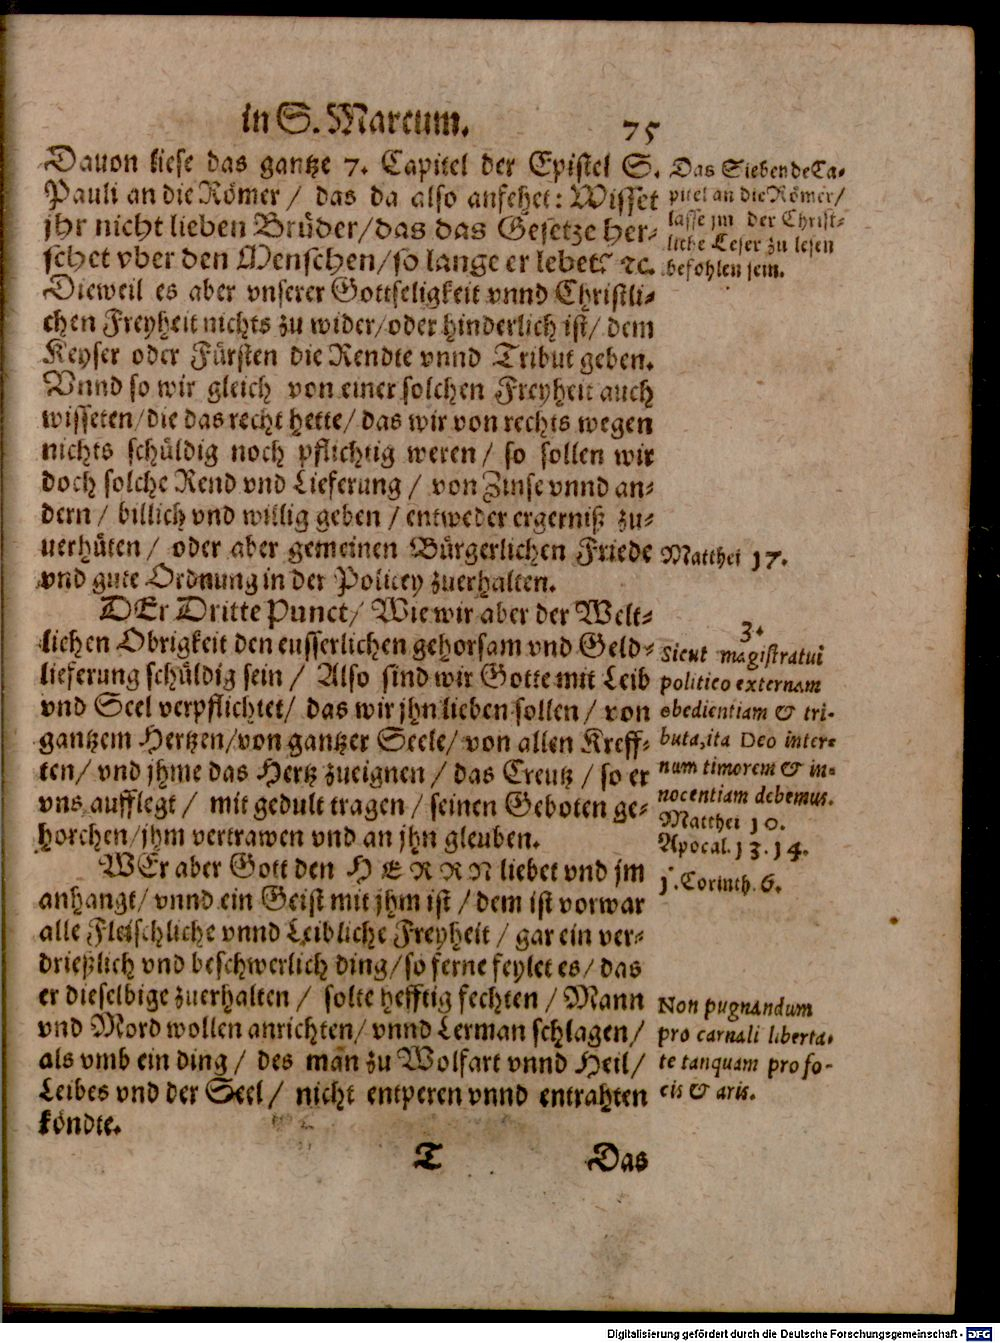 in S. Marcum.
75
Dauon liese das gantze 7. Capitel der Epistel S.
Pauli an die Römer / das da also anfehet: Wisset
jhr nicht lieben Brüder / das das Gesetze her-
schet vber den Menschen / so lange er lebet? ꝛc.
Dieweil es aber vnserer Gottseligkeit vnnd Christli-
chen Freyheit nichts zu wider / oder hinderlich ist / dem
Keyser oder Fürsten die Rendte vnnd Tribut geben.
Vnnd so wir gleich von einer solchen Freyheit auch
wisseten / die das recht hette / das wir von rechts wegen
nichts schüldig noch pflichtig weren / so sollen wir
doch solche Rend vnd Lieferung / von Zinse vnnd an-
dern / billich vnd willig geben / entweder ergerniß zu-
uerhüten / oder aber gemeinen Bürgerlichen Friede
vnd gute Ordnung in der Policey zuerhalten.
DEr Dritte Punct / Wie wir aber der Welt-
lichen Obrigkeit den eusserlichen gehorsam vnd Geld-
lieferung schüldig sein / Also sind wir Gotte mit Leib
vnd Seel verpflichtet / das wir jhn lieben sollen / von
gantzem Hertzen / von gantzer Seele / von allen Kreff-
ten / vnd jhme das Hertz zueignen / das Creutz / so er
vns aufflegt / mit gedult tragen / seinen Geboten ge-
horchen / jhm vertrawen vnd an jhn gleuben.
WEr aber Gott den HERRN liebet vnd jm
anhangt / vnnd ein Geist mit jhm ist / dem ist vorwar
alle Fleischliche vnnd Leibliche Freyheit / gar ein ver-
drießlich vnd beschwerlich ding / so ferne feylet es / das
er dieselbige zuerhalten / solte hefftig fechten / Mann
vnd Mord wollen anrichten / vnnd Lerman schlagen /
als vmb ein ding / des man zu Wolfart vnnd Heil /
Leibes vnd der Seel / nicht entperen vnnd entrahten
köndte.
T
Das
Das Siebende Ca-
pitel an die Römer /
lasse jm der Christ-
liche Leser zu lesen
befohlen sein.
Matthei 17.
3.
Sicut magistratui
politico externam
obedientiam & tri-
buta, ita Deo inter-
num timorem & in-
nocentiam debemus.
Matthei 10.
Apocal. 13. 14.
1. Corinth. 6.
Non pugnandum
pro carnali liberta-
te tanquam pro fo-
cis & aris.
Digitalisierung gefördert durch die Deutsche Forschungsgemeinschaft - DFG